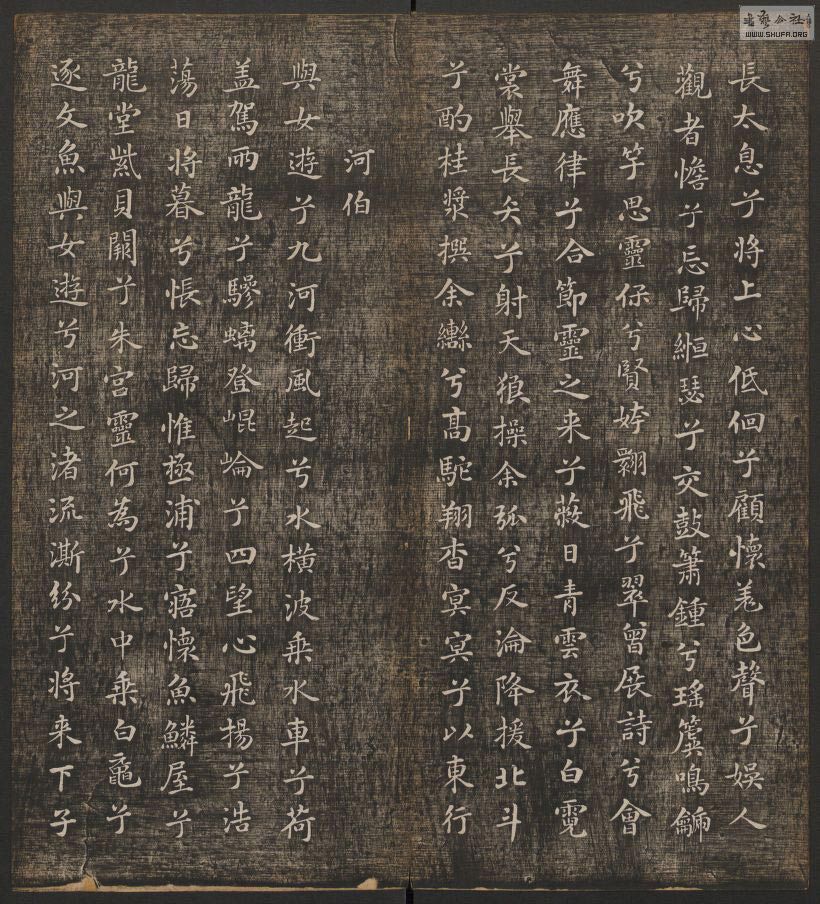 書藝公社
WWW.SHUFA.ORG
長太息兮將上心低佪兮顧懷羗色聲兮娛人
觀者憺兮忘歸緪瑟兮交鼓簫鍾兮瑤簴鳴䶵
兮吹竽思靈保兮賢姱翾飛兮翠曾展詩兮會
舞應律兮合節靈之来兮蔽日青雲衣兮白霓
裳舉長矢兮射天狼操余弧兮反淪降援北斗
兮酌桂漿撰余轡兮高駝翔杳冥冥兮以東行
河伯
與女遊兮九河衝風起兮水橫波乗水車兮荷
盖駕兩龍兮驂螭登崐崘兮四望心飛揚兮浩
蕩日將暮兮悵忘歸惟極浦兮寤懷魚鱗屋兮
龍堂紫貝闕兮朱宮靈何為兮水中乗白黿兮
逐文魚與女遊兮河之渚流澌紛兮將来下子